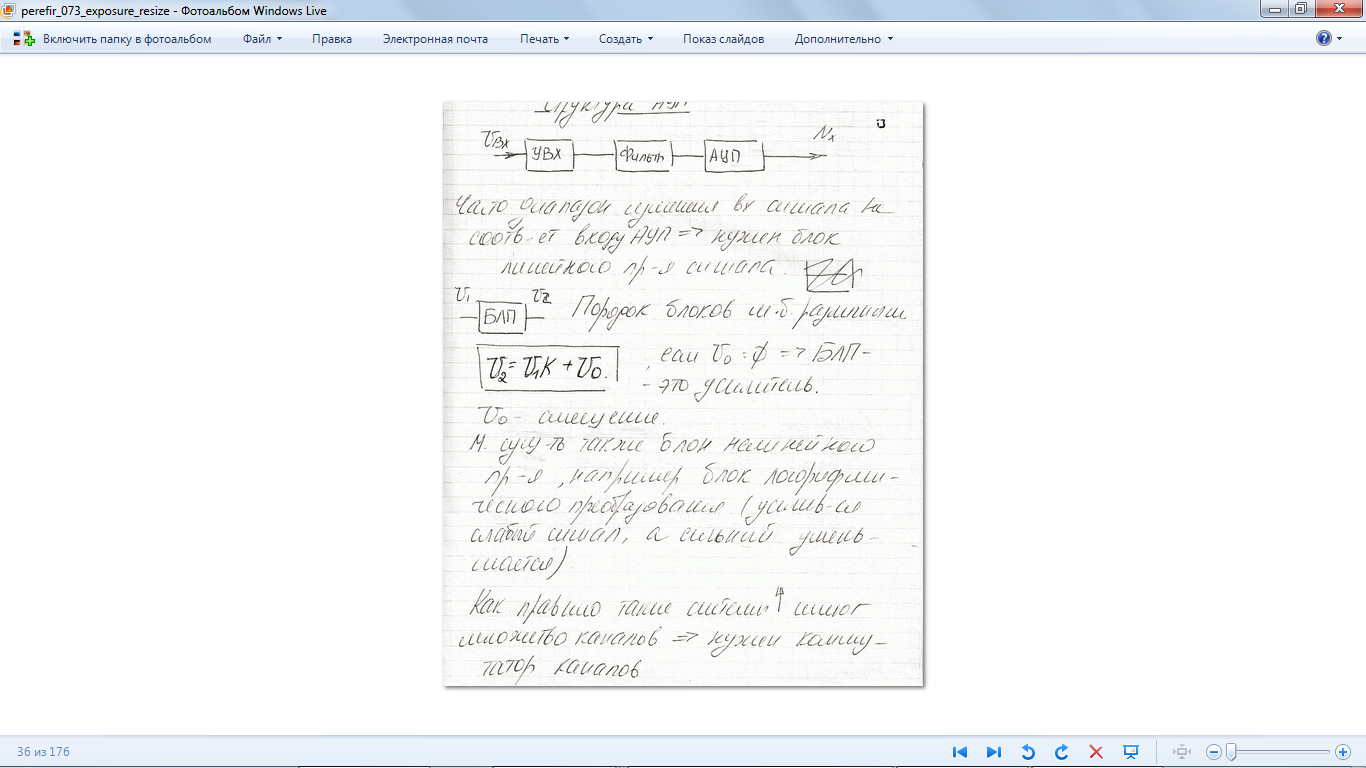 perefir_073_exposure_resize - Фотоальбом Windows Live
Включить папку в фотоальбом Файл Правка Электронная почта Печать Создать Показ слайдов Дополнительно
Структура АЦП
Uвх УВХ Фильтр АЦП Nx
Часто диапазон вх сигнала не
соотв-ет входу АЦП => нужен блок
линейного пр-я сигнала.
U1 БЛП U2 Порядок блоков м.б. различным
U2 = U1K + U0. , если U0 = ф => БЛП -
- это усилитель.
U0 - смещение.
М. сущ-ть также блок нелинейного
пр-я, например блок логорифми-
ческого преобразования (усилив-ся
слабый сигнал, а сильный умень-
шается)
Как правило такие системы имеют
множество каналов => нужен комму-
татор каналов
36 из 176